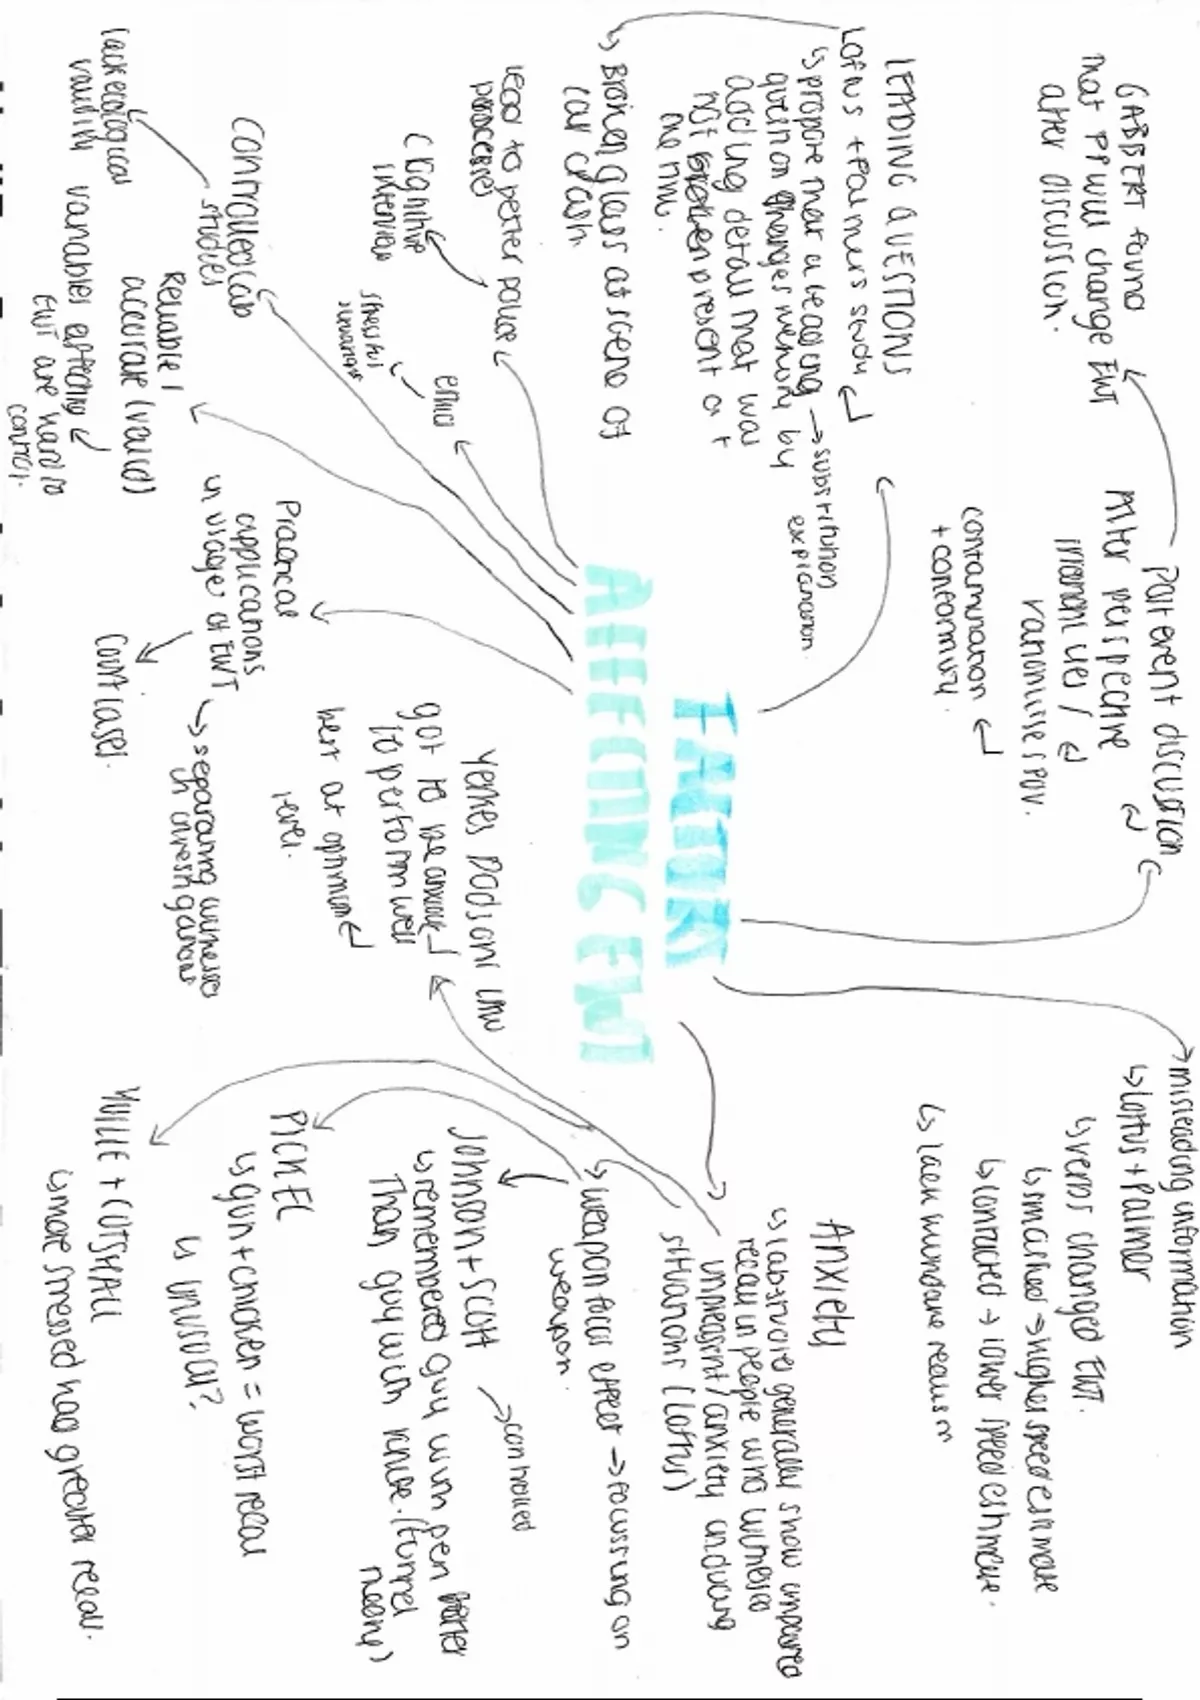 FACTORS
AFFECTING EWT
GABBERT found
that PP will change EWT
after discussion.
Post event discussion
Alter perspective
memories/
randomises POV.
contamination
+ conformity.
LEADING QUESTIONS
Loftus + Palmers study
propose that a leading → substitution
explanation
question changes memory by
adding detail that was
not present at
the time.
Broken glass at scene of
car crash.
lead to better police
processes
Cognitive
interview
ethics
stressful
Controlled lab
studies
lack ecological
validity
Reliable /
accurate (valid)
variables effecting
EWT are hard to
control.
Practical
applications
in usage of EWT
Court cases.
→ separating witnesses
in investigations
Yerkes Dodsons Law
got to be anxious
to perform well
best at optimum
level.
misleading information
Loftus + Palmer
verbs changed EWT.
smashed → higher speed estimate
contacted → lower speed estimate.
lack mundane realism
Anxiety
lab studies generally show impaired
recall in people who witness
unpleasent/anxiety inducing
situations (Loftus)
weapon focus effect → focussing on
weapon.
Johnson + Scott → controlled
remembered guy with pen better
than guy with knife. (tunnel
theory)
PICKEL
gun + chicken = worst recall
unusual?
YUILLE + CUTSHALL
more stressed had greater recall.